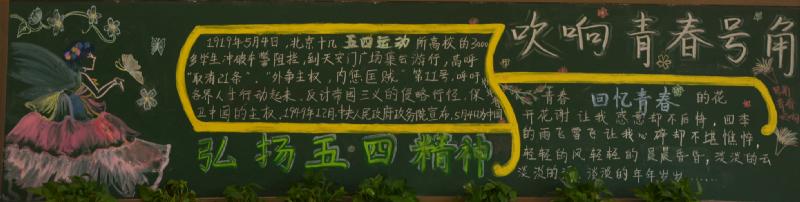 1919年5月4日,北京十几 五四运动 所高校的3000
多学生冲破军警阻挠,到天安门广场集会游行,高呼
"取消21条"、"外争主权,内惩国贼"第11号,呼吁
各界人士行动起来,反对帝国主义的侵略行径,保
卫中国的主权。1949年12月中央人民政府政务院宣布,5月4日为中国
弘扬五四精神
吹响青春号角
青春 回忆青春 的花
开花谢 让我 感憊却不后悔,四季
的雨飞雪飞让我心碎却不堪憔悴,
轻轻的风轻轻的 晨晨昏昏,淡淡的云
淡淡的 淡淡的年年岁岁……